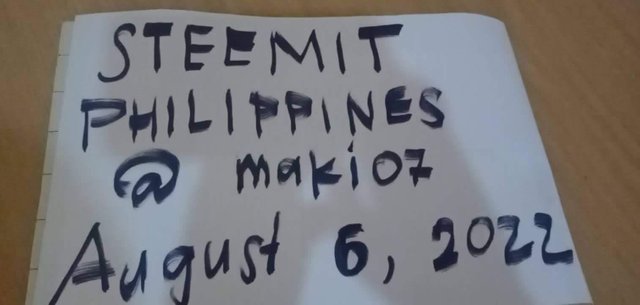 STEEMIT
PHILIPPINES
@ maki07
August 6, 2022